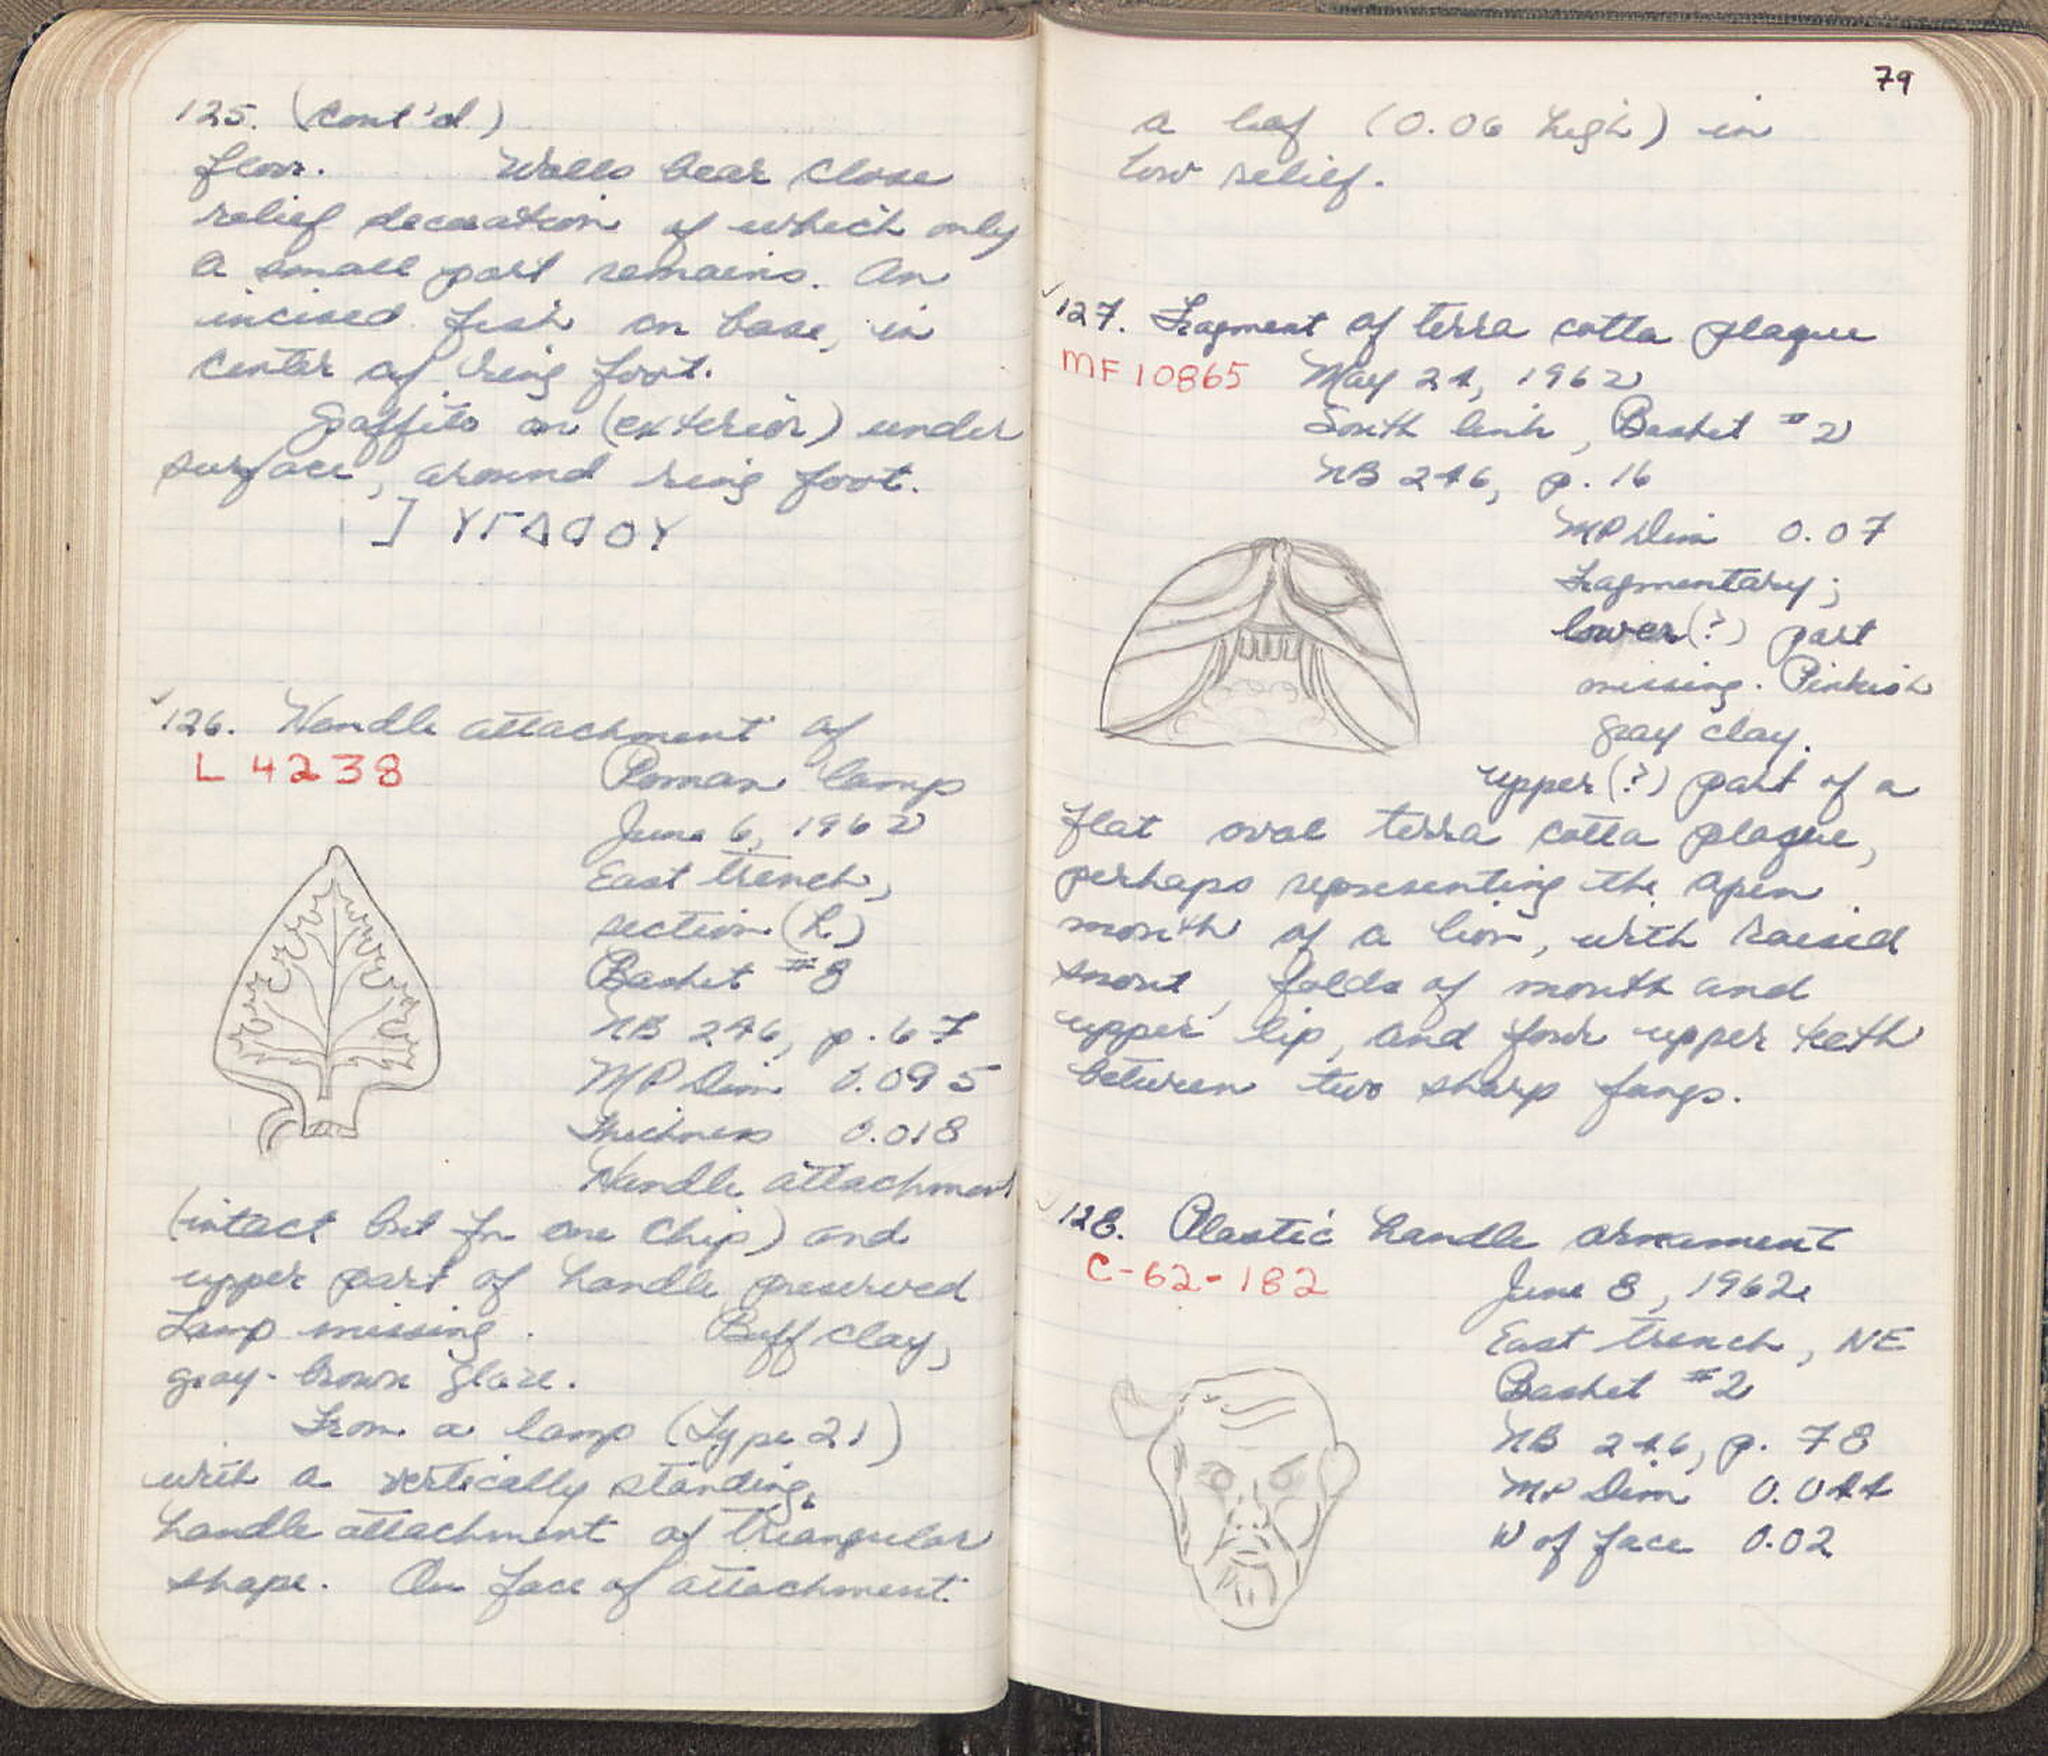 125. (cont'd)
floor. Walls bear close
relief decoration of which only
a small part remains. An
incised fish on base, in
center of ring foot.
Gaffito on (exterior) under
surface, around ring foot.
] ΥΓΔ ΟΥ
126. Handle attachment of
L 4238
Roman lamp
June 6, 1962
East trench,
section (h)
Basket #8
NB 246, p. 67
MP Dim 0.095
Thickness 0.018
Handle attachment
(intact but for one chip) and
upper part of handle preserved
Lamp missing. Buff clay,
gray-brown glaze.
From a lamp (Type 21)
with a vertically standing,
handle attachment of triangular
shape. On face of attachment
79
a leaf (0.06 high) in
low relief.
127. Fragment of terra cotta plaque
MF 10865 May 24, 1962
South link, Basket #2
NB 246, p. 16
MP Dim 0.07
Fragmentary;
lower(?) part
missing. Pinkish
gray clay.
upper(?) part of a
flat oval terra cotta plaque,
perhaps representing the open
mouth of a lion, with raised
snout, folds of mouth and
upper lip, and four upper teeth
between two sharp fangs.
128. Plastic handle ornament
C-62-182
June 8, 1962
East trench, NE
Basket #2
NB 246, p. 78
MP Dim 0.044
W of face 0.02